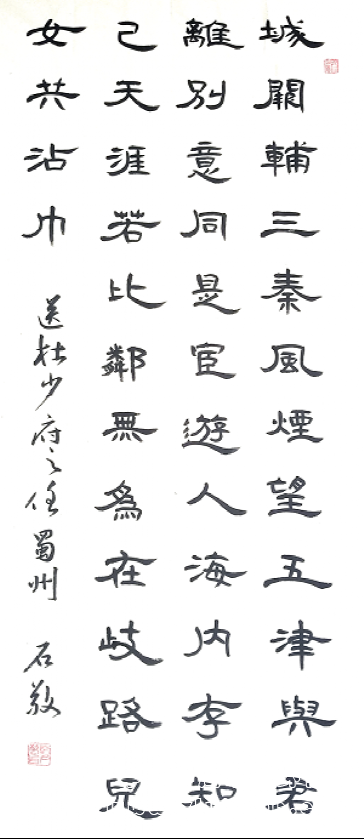 城闕輔三秦風煙望五津與君
離別意同是宦遊人海内存知
己天涯若比鄰無為在歧路兒
女共沾巾
送杜少府之任蜀州 石敬